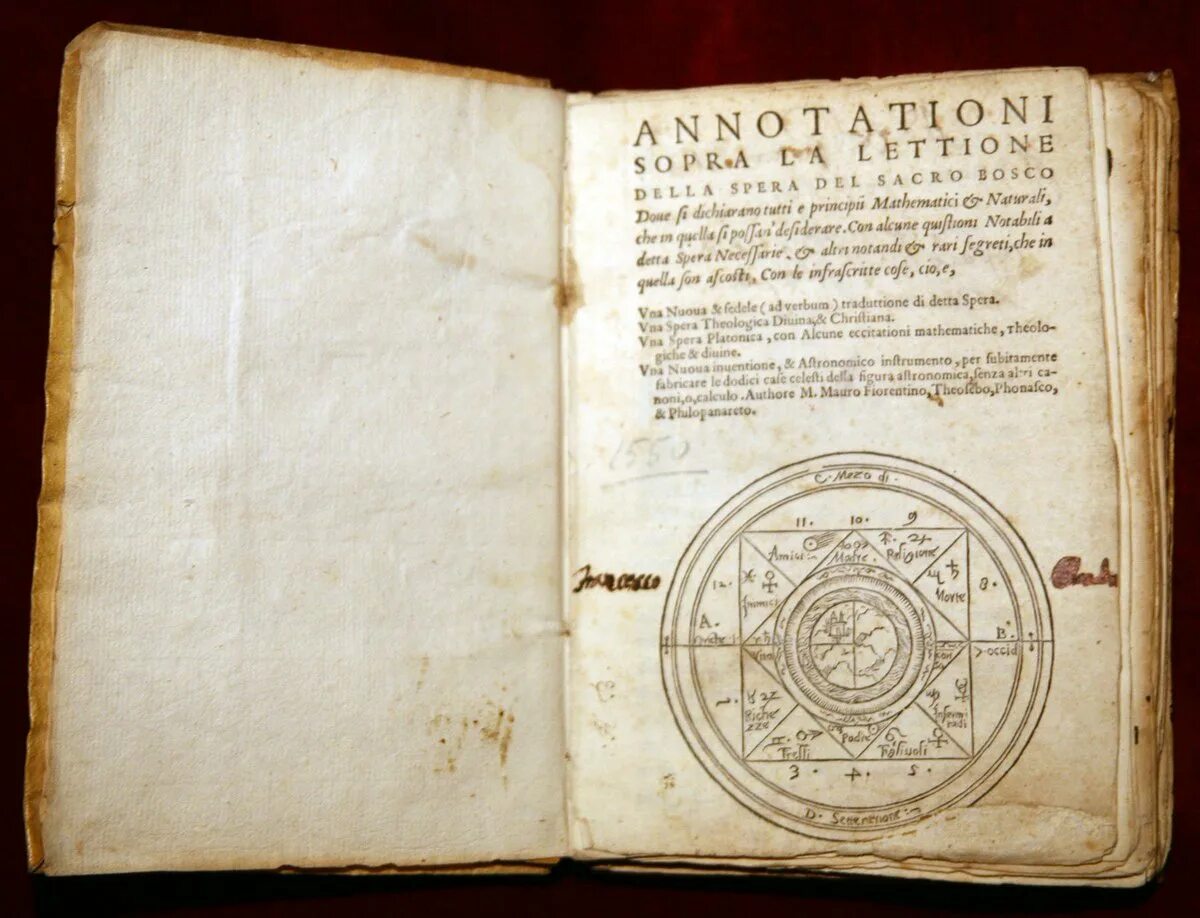 ANNOTATIONI
SOPRA LA LETTIONE
DELLA SPERA DEL SACRO BOSCO
Doue si dichiarano tutti e principii Mathematici & Naturali,
che in quella si possan' desiderare. Con alcune quistioni Notabili a
detta Spera Necessarie. & altri notandi & rari segreti, che in
quella son ascosti, Con le infrascritte cose, cio, e,
Vna Nuoua & fedele (ad verbum) traduttione di detta Spera.
Vna Spera Theologica Diuina, & Christiana.
Vna Spera Platonica, con Alcune eccitationi mathematiche, Theolo-
giche & diuine.
Vna Nuoua inuentione, & Astronomico instrumento, per subitamente
fabricare le dodici case celesti della figura astronomica, senza altri ca-
noni, o, calculo. Authore M. Mauro Fiorentino, Theosebo, Phonasco,
& Philopanareto.
1550
C. Mezo di.
11. 10. 9
Amici Madre. Religione
12. Morte 8.
Francesco
A. B.
Vita occid
Riche
zze Infermi
tadi
Padre
Figliuoli
3. 4. 5.
D.